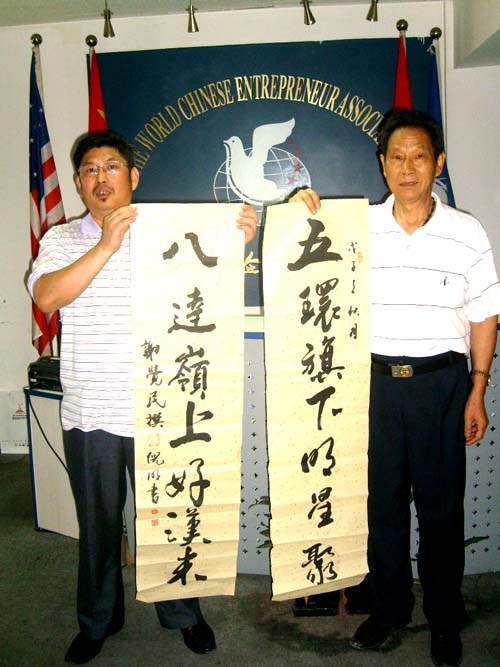 THE WORLD CHINESE ENTREPRENEUR ASSOCI
戊子之秋月
五環旗下明星聚
八達嶺上好漢來
覺民撰 倪明書